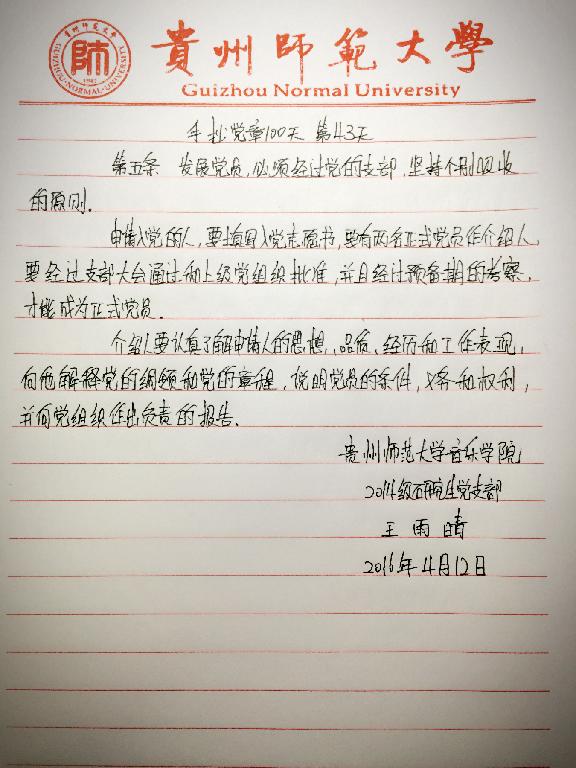 貴州師範大學
Guizhou Normal University
貴州師範大學
師
1941
GUIZHOU·NORMAL·UNIVERSITY
手抄党章100天 第43天
第五条 发展党员,必须经过党的支部,坚持个别吸收
的原则.
申请入党的人,要填写入党志愿书,要有两名正式党员作介绍人,
要经过支部大会通过和上级党组织批准,并且经过预备期的考察,
才能成为正式党员.
介绍人要认真了解申请人的思想、品质、经历和工作表现,
向他解释党的纲领和党的章程,说明党员的条件、义务和权利,
并向党组织作出负责的报告.
贵州师范大学音乐学院
2014级研究生党支部
王雨晴
2016年4月12日